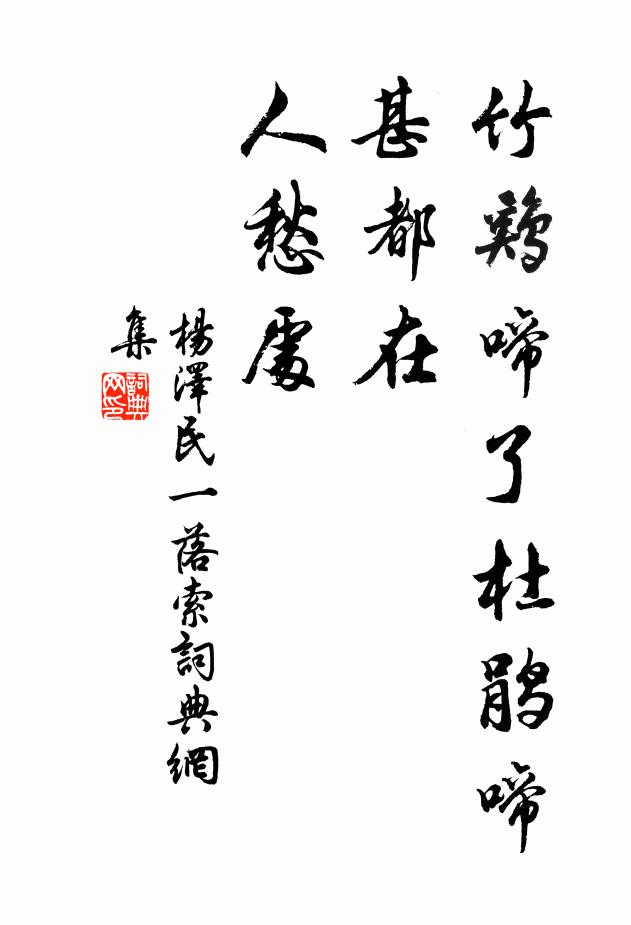 竹鷄啼了杜鹃啼
甚都在
人愁處
楊澤民一落索詞典網
集
詞典网印